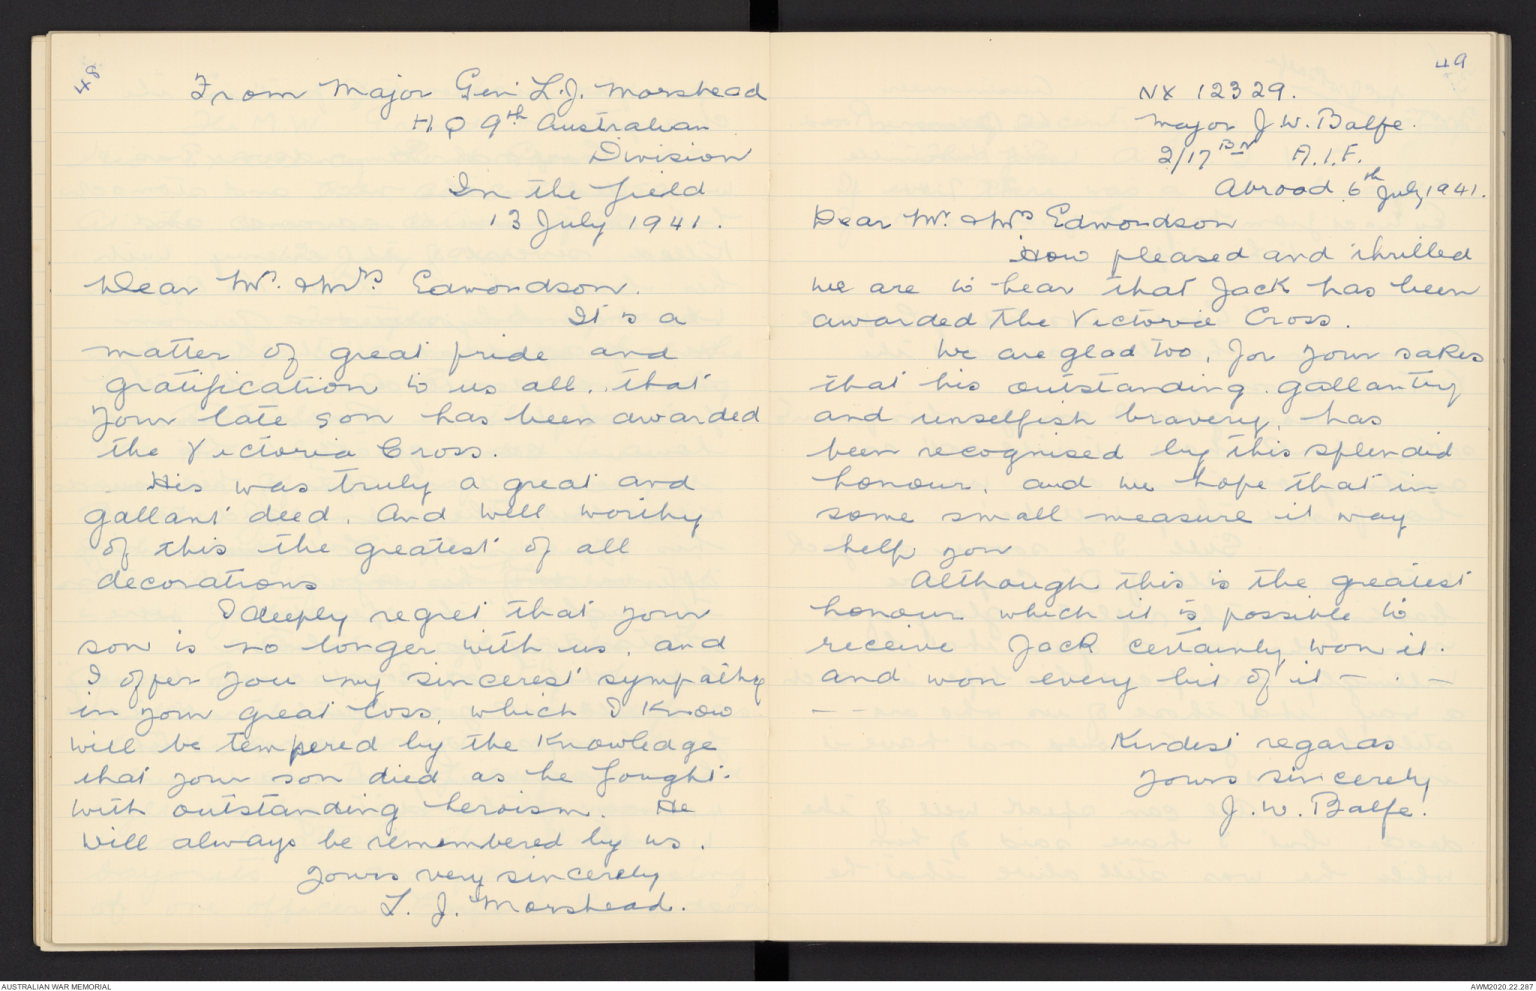 48
From Major Gen L.J. Morshead
H Q 9th Australian
Division
In the field
13 July 1941.
Dear Mr. & Mrs Edmondson.
It is a
matter of great pride and
gratification to us all, that
your late son has been awarded
the Victoria Cross.
His was truly a great and
gallant deed. And well worthy
of this the greatest of all
decorations
I deeply regret that your
son is no longer with us, and
I offer you my sincerest sympathy
in your great loss, which I know
will be tempered by the knowledge
that your son died as he fought.
with outstanding heroism. He
will always be remembered by us.
Yours very sincerely
L. J. Morshead.
49
NX 12329.
Major J. W. Balfe.
2/17 Bn A.I.F.
Abroad 6th July 1941.
Dear Mr. & Mrs Edmondson
How pleased and thrilled
we are to hear that Jack has been
awarded the Victoria Cross.
We are glad too, for your sakes
that his outstanding gallantry
and unselfish bravery, has
been recognised by this splendid
honour, and we hope that in
some small measure it way
help you
Although this is the greatest
honour which it is possible to
receive Jack certainly won it.
and won every bit of it — . —
— —
Kindest regards
Yours sincerely
J. W. Balfe.
AUSTRALIAN WAR MEMORIAL
AWM2020.22.287